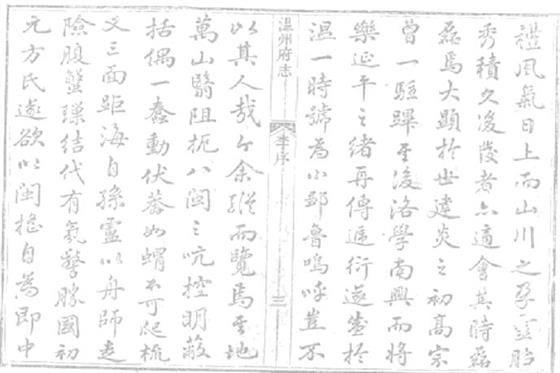 禮風氣日上而山川之孕靈胎
秀積久後發者亦適會其時磊
磊焉大顯於世建炎之初高宗
曾一駐蹕至後洛學南興而將
樂延平之緒再傳遞衍遂盛於
溫一時號為小鄒魯嗚呼豈不
温州府志
李序
三
以其人哉余縱而覽焉地
萬山翳阻扼八閩之吭控明蔽
括偶一蠢動伏莽如蝟不可爬梳
又三面距海自孫盧以舟師走
險腹蟹結代有氛警勝國初
元方氏遂欲以閩搖自為即中